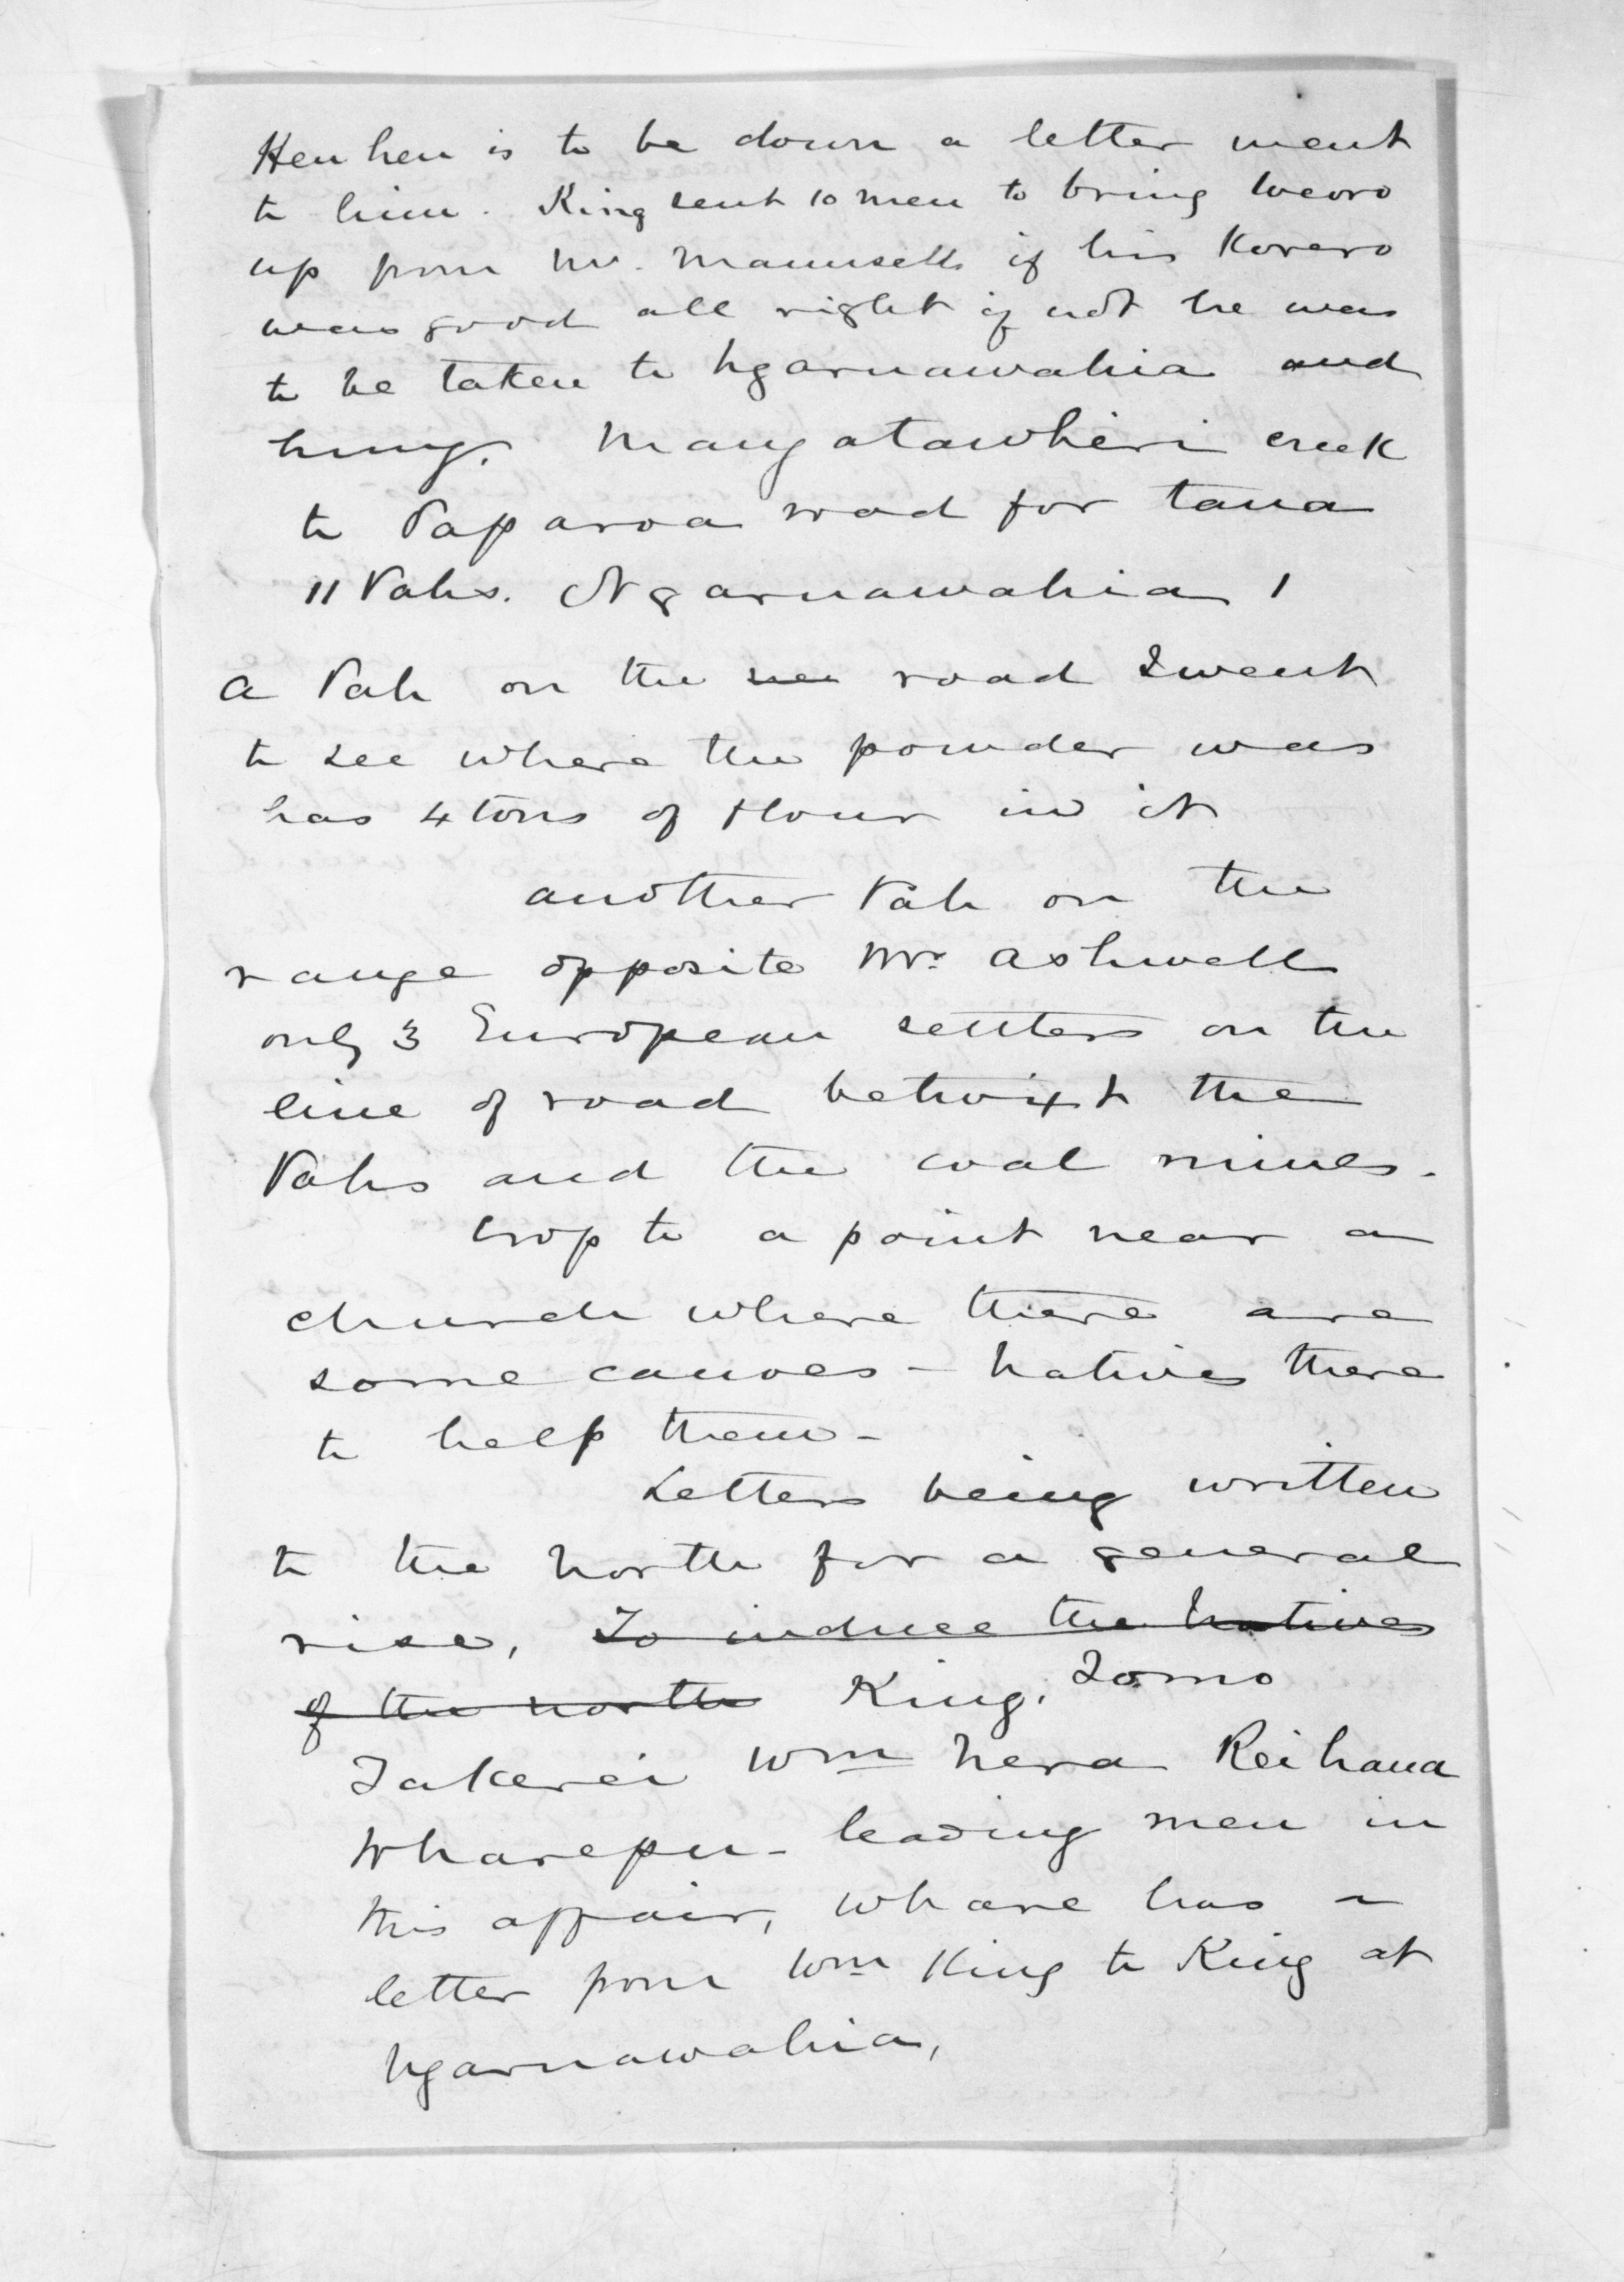 Heu heu is to be down a letter went
to him. King sent 10 men to bring Weoro
up from Mr. Maunsells if his Korero
was good all right if not he was
to be taken to Ngaruawahia and
hung. Mangatawheri creek
to Paparoa road for taua
11 Pahs. Ngaruawahia 1
a Pah on the road I went
to see where the powder was
has 4 tons of flour in it
another Pah on the
range opposite Mr. Ashwell
only 3 European settlers on the
line of road betwixt the
Pahs and the coal mines.
Crop to a point near a
church where there are
some canoes - Natives there
to help them -
Letters being written
to the North for a general
rise, To induce the Natives
of the North King. Tomo
Takerei Wm Nera Reihana
Wharepu - leading men in
this affair, Whare has a
letter from Wm King to King at
Ngaruawahia,